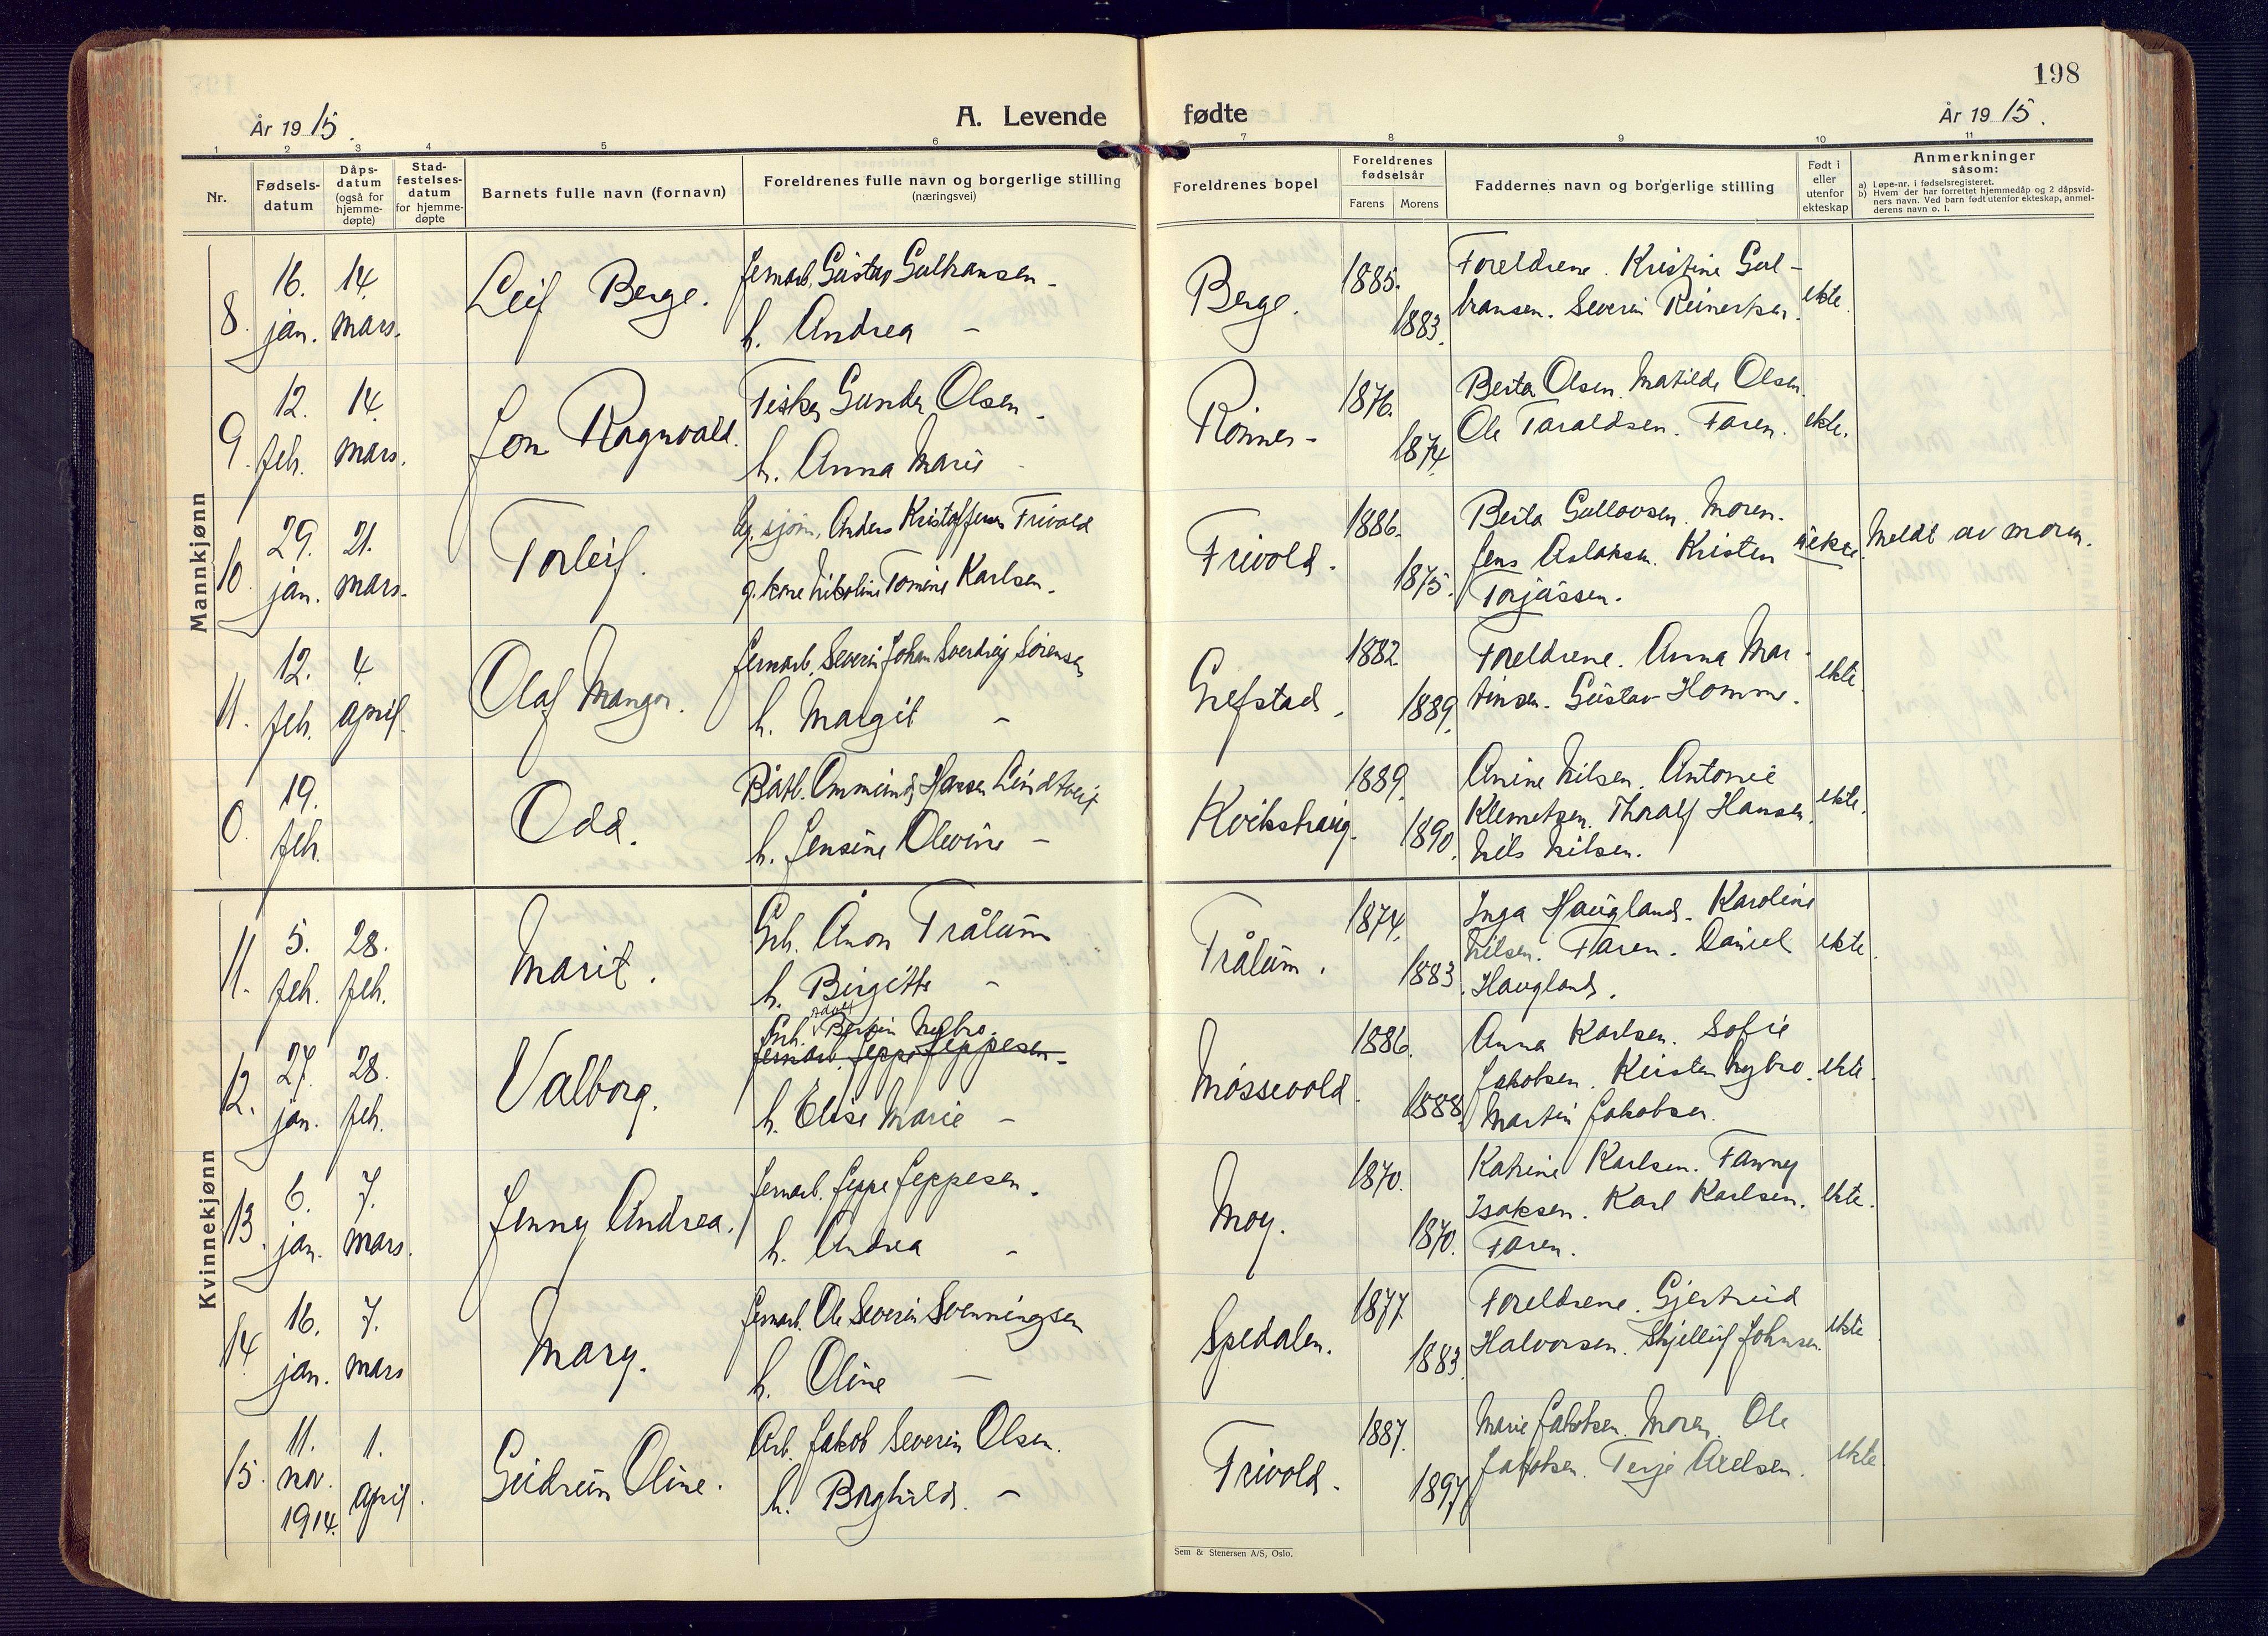 198
År 1915.
A. Levende
fødte
År 1915.
1 2 3 4 5 6 7 8 9 10 11
Nr.
Fødsels-
datum
Dåps-
datum
(også for
hjemme-
døpte)
Stad-
festelses-
datum
for hjemme-
døpte
Barnets fulle navn (fornavn)
Foreldrenes fulle navn og borgerlige stilling
(næringsvei)
Foreldrenes bopel
Foreldrenes
fødselsår
Farens Morens
Faddernes navn og borgerlige stilling
Født i
eller
utenfor
ekteskap
Anmerkninger
såsom:
a) Løpe-nr. i fødselsregisteret.
b) Hvem der har forrettet hjemmedåp og 2 dåpsvid-
ners navn. Ved barn født utenfor ekteskap, anmel-
derens navn o. l.
Mannkjønn
8. 16. jan. 14. mars. Leif Berge.
Jernarb. Gustav Gulbransen -
h. Andrea -
Berge. 1885. 1883.
Foreldrene. Kristine Gul-
bransen. Severin Reinertsen. ekte.
9. 12. feb. 14. mars. Jon Ragnvald.
Fisker Gunder Olsen -
h. Anna Marie -
Rønnes - 1876. 1874.
Berta Olsen. Matilde Olsen.
Ole Taraldsen. Faren. ekte.
10. 29. jan. 21. mars. Torleif.
Ug. sjøm. Anders Kristoffersen Frivold
g. kone Nikoline Tomine Karlsen.
Frivold. 1886. 1875.
Berta Gullovsen. Moren.
Jens Aslaksen. Kristen
Torjussen. uekte. Meldt av moren.
11. 12. feb. 4. april. Olaf Mangor.
Jernarb. Severin Johan Sverdrup Sørensen
h. Margit -
Grefstad. 1882. 1889.
Foreldrene. Anna Mar-
tinsen. Gustav Homme. ekte.
0. 19. feb. Odd.
Båtb. Ommund Hansen Lindtveit
h. Jensine Olevine -
Kvikshaug. 1889. 1890.
Anine Nilsen. Antonie
Klemetsen. Thoralf Hansen.
Nils Nilsen. ekte.
Kvinnekjønn
11. 5. feb. 28. feb. Marit.
Grb. Anon Trålum
h. Birgitte -
Trålum. 1874. 1883.
Inga Haugland. Karoline
Nilsen. Faren. Daniel
Haugland. ekte.
12. 27. jan. 28. feb. Valborg.
Grb. Bertin Nybro.
Jernarb. Jeppe Jeppesen -
h. Elise Marie -
Møssevold. 1886. 1888.
Anna Karlsen. Sofie
Jakobsen. Kristen Nybro.
Martin Jakobsen. ekte.
13. 6. jan. 7. mars. Jenny Andrea.
Jernarb. Jeppe Jeppesen.
h. Andrea -
Moy. 1870. 1870.
Katrine Karlsen. Fanny
Isaksen. Karl Karlsen.
Faren. ekte.
14. 16. jan. 7. mars Mary.
Jernarb. Ole Severin Svenningsen
h. Oline -
Spedalen. 1877. 1883.
Foreldrene. Gjertrud
Halvorsen. Skjelluf Johnsen. ekte.
15. 11. nov. 1914. 1. april. Gudrun Oline.
Arb. Jakob Severin Olsen.
h. Borghild. -
Frivold. 1887. 1897.
Marie Jakobsen. Moren. Ole
Jakobsen. Terje Axelsen. ekte
Sem & Stenersen A/S, Oslo.